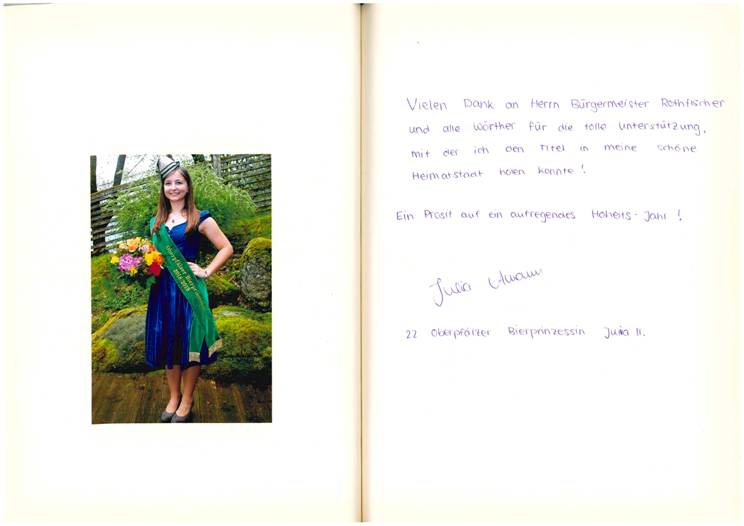 Oberpfälzer Bierprinzessin
2018-2019
Vielen Dank an Herrn Bürgermeister Rothfischer
und alle Wörther für die tolle Unterstützung,
mit der ich den Titel in meine schöne
Heimatstadt holen konnte!
Ein Prosit auf ein aufregendes Hoheits-Jahr!
Julia
22 Oberpfälzer Bierprinzessin Julia II.